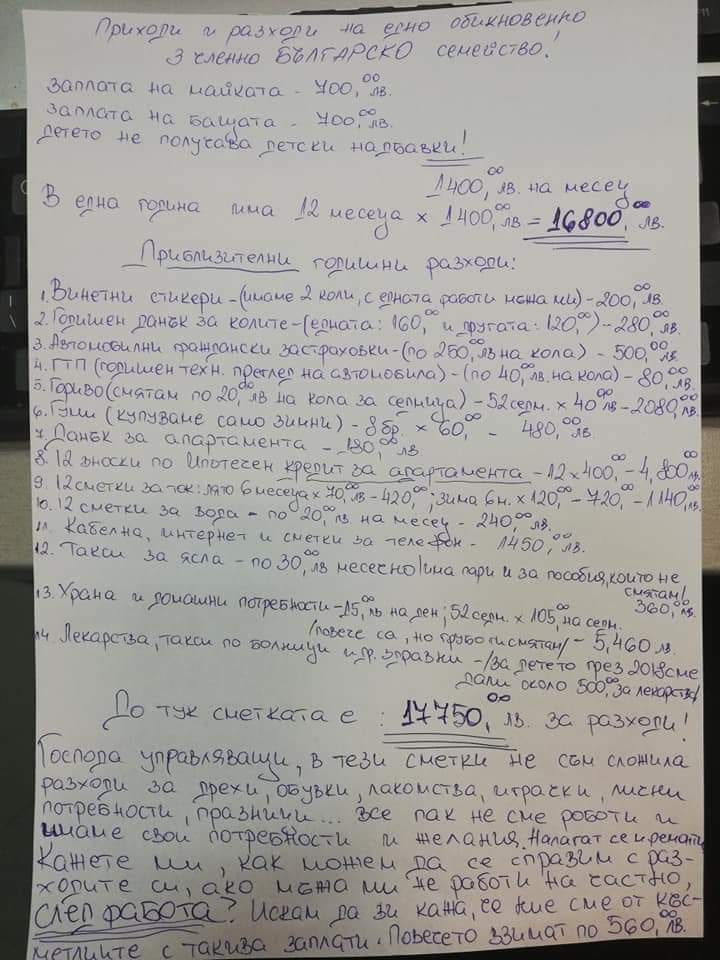 Приходи и разходи на едно обикновенно
3 членно БЪЛГАРСКО семейство!
Заплата на майката - 700,00 лв.
Заплата на бащата - 700,00 лв.
Детето не получава детски надбавки!
1400,00 лв. на месец
В една година има 12 месеца × 1400,00 лв = 16800,00 лв.
Приблизителни годишни разходи:
1. Винетни стикери - (имаме 2 коли, с едната работи мъжа ми) - 200,00 лв.
2. Годишен данък за колите - (едната: 160,00 и другата: 120,00) - 280,00 лв.
3. Автомобилни граждански застраховки - (по 250,00 лв на кола) - 500,00 лв.
4. ГТП (годишен техн. преглед на автомобила) - (по 40,00 лв. на кола) - 80,00 лв.
5. Гориво (смятам по 20,00 лв на кола за седмица) - 52 седм. × 40,00 лв - 2080,00 лв.
6. Гуми (купуваме само зимни) - 8 бр. × 60,00 - 480,00 лв.
7. Данък за апартамента - 180,00 лв
8. 12 вноски по Ипотечен кредит за апартамента - 12 × 400,00 - 4,800 лв
9. 12 сметки за ток: лято 6 месеца × 70,00 лв - 420,00; зима 6 м. × 120,00 - 720,00 - 1140,00 лв.
10. 12 сметки за вода - по 20,00 лв. на месец - 240,00 лв.
11. Кабелна, интернет и сметки за телефон - 1450,00 лв.
12. Такси за ясла - по 30,00 лв месечно /има пари и за пособия, които не
смятам/
360,00 лв.
13. Храна и домашни потребности - 15,00 лв на ден; 52 седм. × 105,00 на седм.
/повече са, но грубо ги смятам/ - 5,460 лв.
14. Лекарства, такси по болници и др. здравни - /за детето през 2018 сме
дали около 500,00 за лекарства/
До тук сметката е : 17750,00 лв. за разходи!
Господа управляващи, в тези сметки не съм сложила
разходи за дрехи, обувки, лакомства, играчки, лични
потребности, празници... Все пак не сме роботи и
имаме свои потребности и желания. Налагат се и ремонти
Кажете ми, как можем да се справим с раз-
ходите си, ако мъжа ми не работи на частно,
СЛЕД РАБОТА? Искам да ви кажа, че ние сме от къс-
метлиите с такива заплати. Повечето взимат по 560,00 лв.